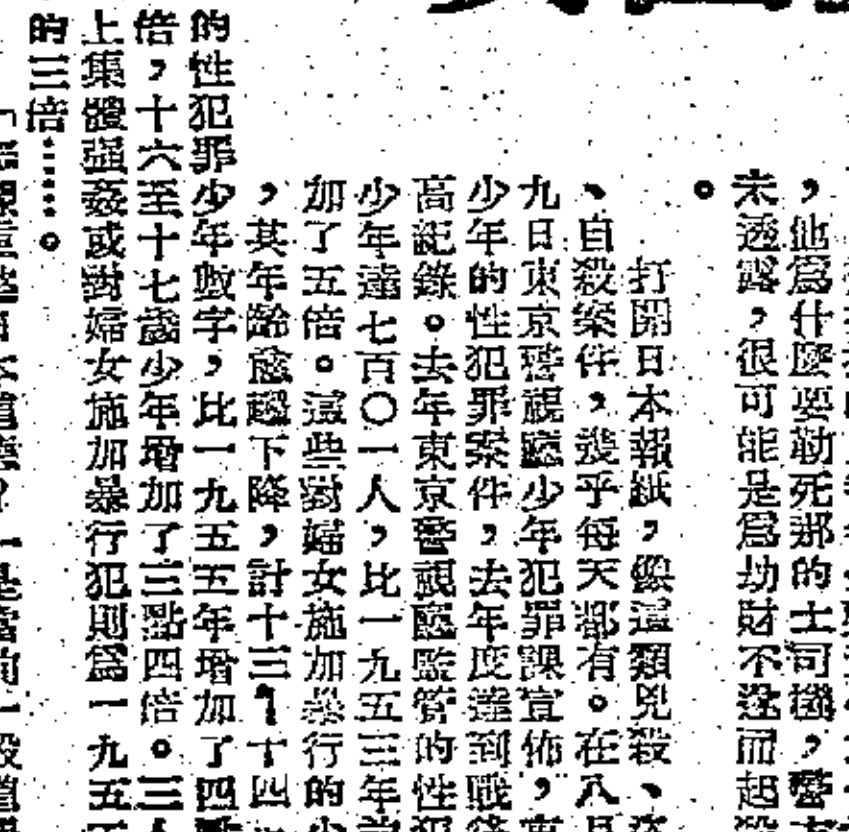 ，他爲什麼要勒死那的士司機，警
未透露，很可能是爲劫財不遂而起殺
。
打開日本報紙，像這類兇殺、
、自殺案件，幾乎每天都有。在八月
九日東京警視廳少年犯罪課宣佈，東
少年的性犯罪案件，去年度達到戰後
高紀錄。去年東京警視廳監管的性犯
少年達七百〇一人，比一九五三年
加了五倍。這些對婦女施加暴行的少
，其年齡愈趨下降，計十三、十四
的性犯罪少年數字，比一九五五年增加了四
倍，十六至十七歲少年增加了三點四倍。三人
上集體强姦或對婦女施加暴行犯則爲一九五
的三倍……。